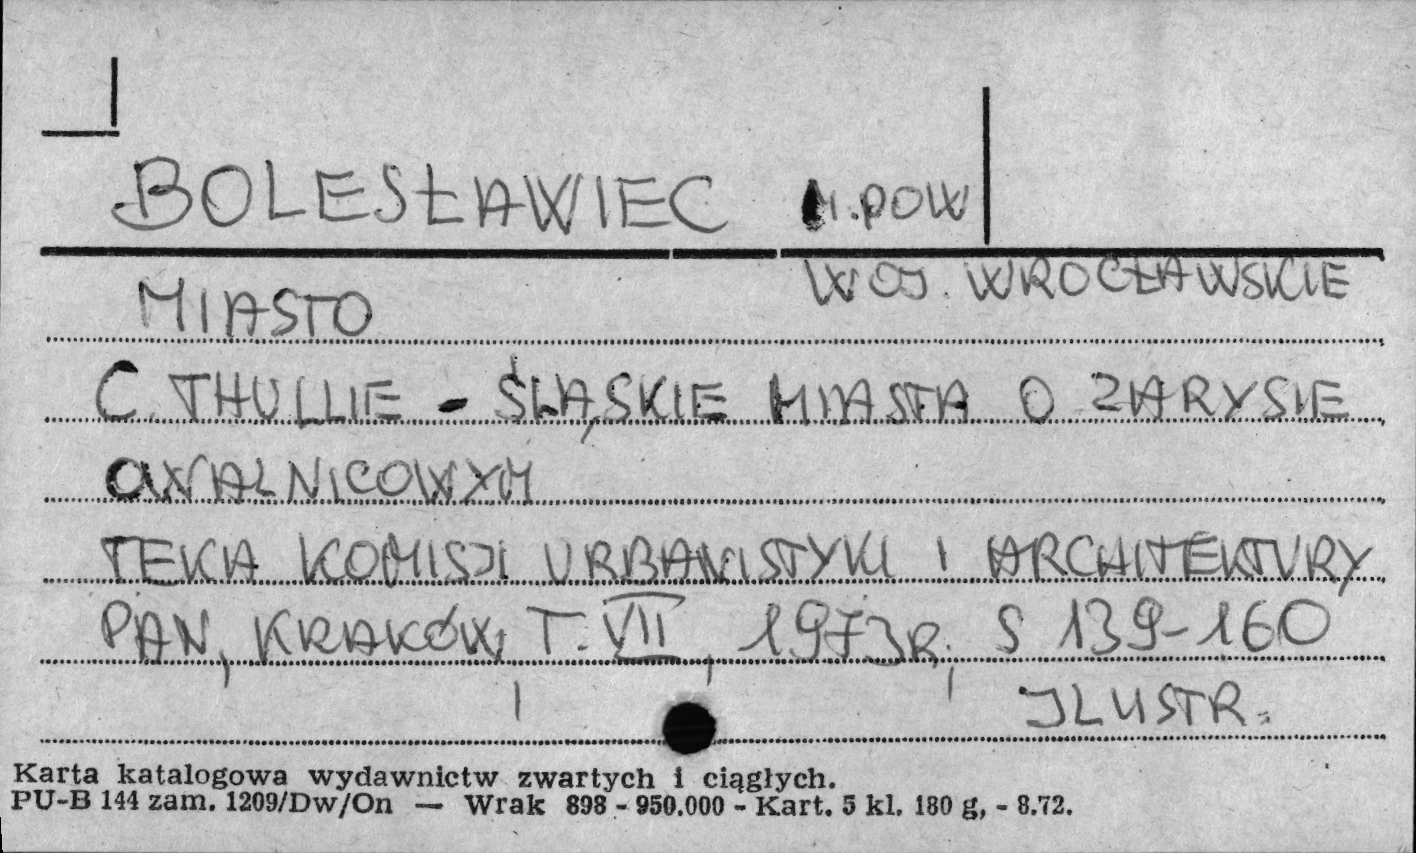 BOLESŁAWIEC M. POW
WOJ. WROCŁAWSKIE
MIASTO
C. THULLIE - ŚLĄSKIE MIASTA O ZARYSIE
OWALNICOWYM
TEKA KOMISJI URBANISTYKI I ARCHITEKTURY
PAN, KRAKÓW, T. VII, 1973 R, S 139-160
ILUSTR.
Karta katalogowa wydawnictw zwartych i ciągłych.
PU-B 144 zam. 1209/Dw/On — Wrak 898 - 950.000 - Kart. 5 kl. 180 g, - 8.72.